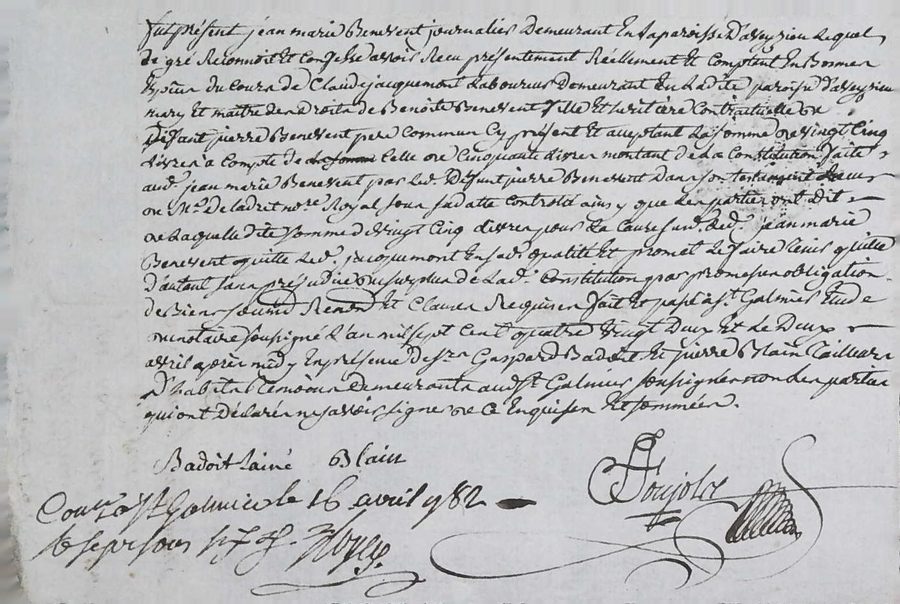 fut présent jean marie Benevent journalier Demeurant En la paroisse D'aveyzieu Lequel
de gré Reconnoit et Confesse avoir Recu présentement Réellement et Comptant En Bonnes
Espèces du Cours de Claude jacquemont Laboureur Demeurant En Ladite paroisse d'aveyzieu
mary Et maître des droits de Benoite Benevent fille Et héritière Contractuelle de
Défunt pierre Benevent pere Commun Cy présent Et acceptant La somme de vingt Cinq
Livres à Compte de Celle de Cinquante Livres montant de La Constitution faite
aud. jean marie Benevent par led. Défunt pierre Benevent Dans son testament
de Me. Delandret nore. Royal sous sa datte Controllé ainsy que les parties ont dit
de Laquelle dite somme de vingt Cinq Livres pour La Cause sud. Led. jean marie
Benevent quitte Led. jacquemont En sad. qualité Et promet Le faire tenir quitte
d'autant sans préjudice du surplus de Lad. Constitution par promesse obligation
de Biens soumis Renon Et Clauses Requises fait Et passé à St. Galmier Etude
du notaire soussigné L'an mil sept Cent quatre vingt Deux Et Le Deux
avril après midy En présence de Sr. Gaspard Badoit Et pierre Blain Tailleurs
D'habits Témoins Demeurants aud. St. Galmier soussignés non Les parties
qui ont déclaré ne savoir signer de Ce Enquises Et sommées.
Badoit Lainé Blain
Contlé. à St. Galmier le 16 avril 1782